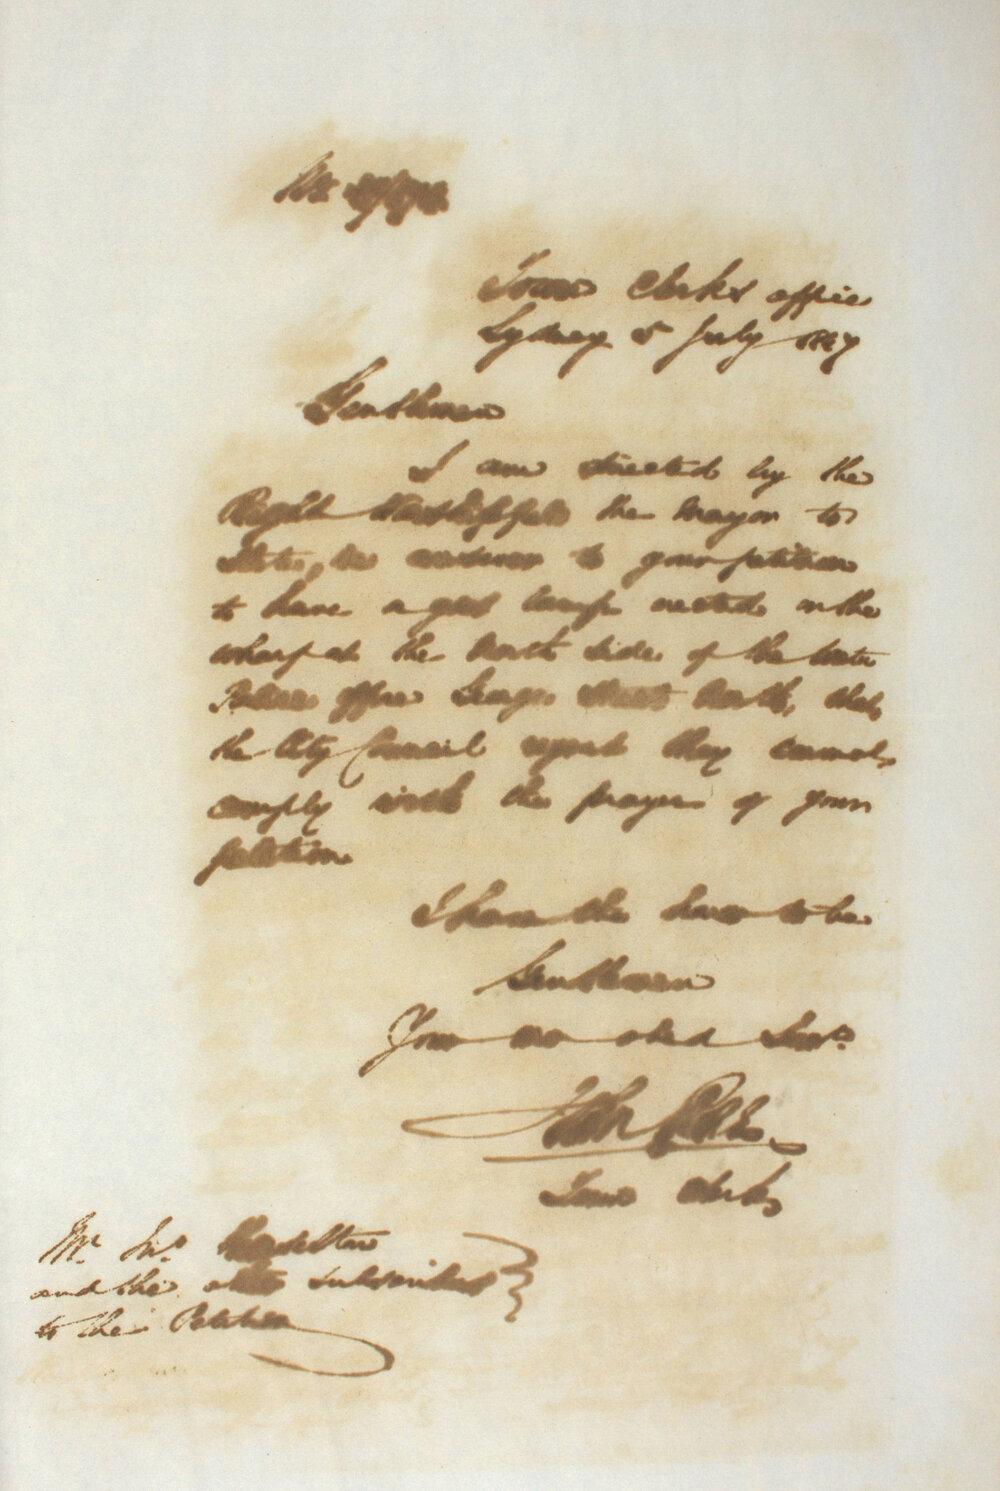 Town Clerks office
Sydney 5 July 1847
Gentlemen
I am directed by the
Right Worshipful the Mayor to
state, in answer to your petition
to have a gas lamp erected on the
wharf at the North Side of the Water
Police Office George Street North, that
the City Council regret they cannot
comply with the prayer of your
petition.
I have the honor to be
Gentlemen
Your mo obed Servt
John Rae
Town Clerk
Mr. Jno.
and the other subscribers
to the Petition